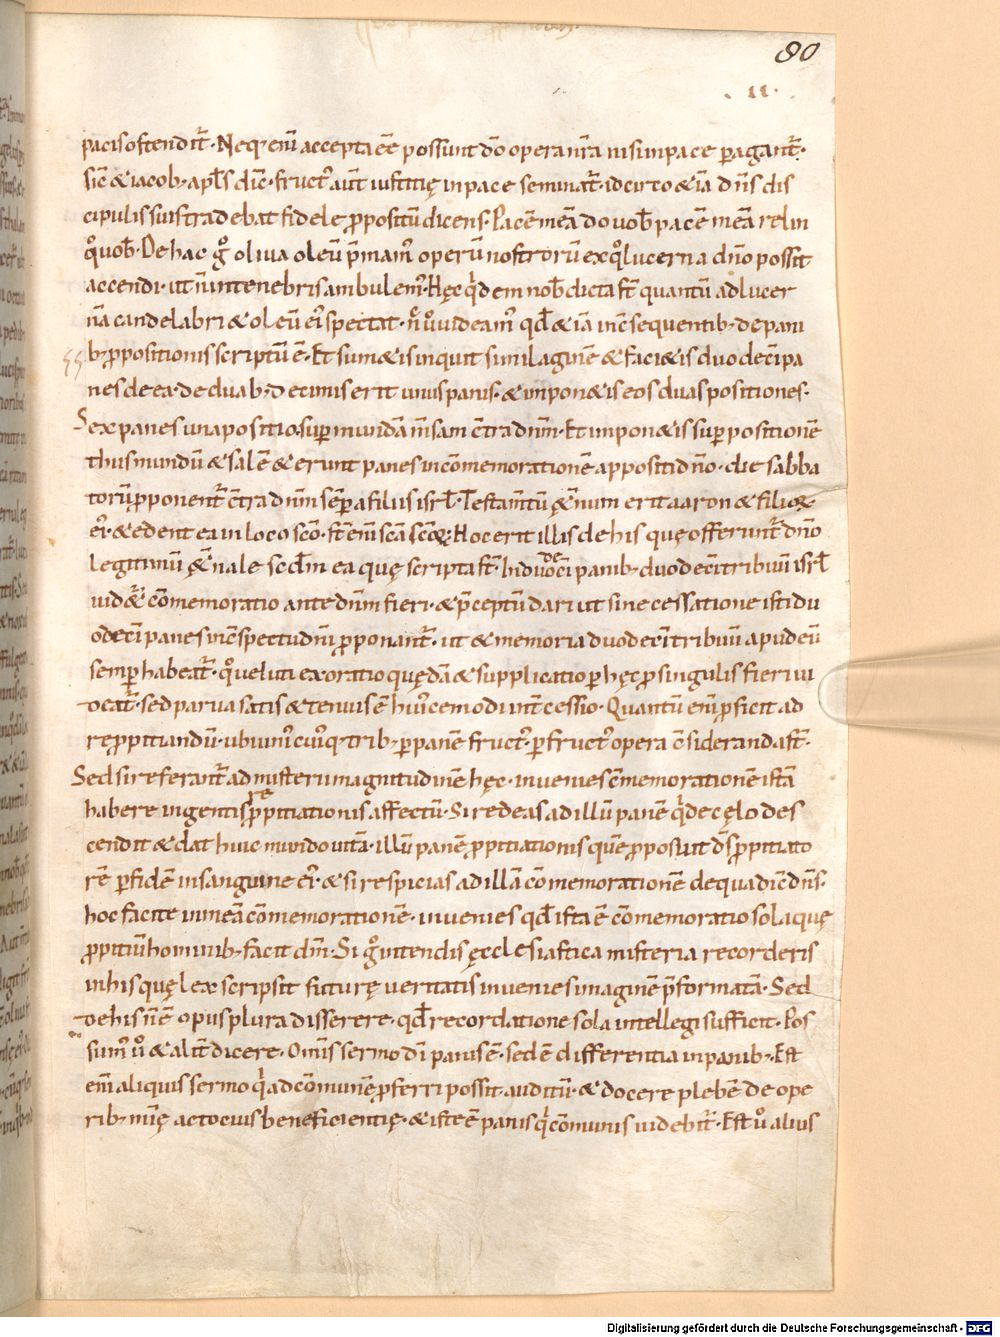 80
.II.
pacis ostendit̄. Neq; enī accepta eē possunt dō opera nr̄a nisi in pace ꝑagant̄.
sic̄ & iacob. apl̄s dic̄. fruct᾽ aut̄ iustitię in pace seminat̄. idcirco & iā dn̄s dis
cipulis suis tradebat fidele ꝓpositū dicens. Pacē meā do uob̄ pacē meā relin
quo uob̄. De hac g̊ oliua oleū p̄mam᾽ operū nostrorū ex q̊ lucerna dn̄o possit
accendi. ut n̄ in tenebris ambulem᾽. Hęc qͥdem nob̄ dicta st̄ quantū ad lucer
nā candelabri & oleū ei᾽ spectat. nc̄ ů uideam᾽ qd̄ & iā in c̄sequentib; de pani
b; ꝓpositionis scriptū ē. Et sum&is inquit similaginē & faci&is duodecī pa
nes de ea. de duab; decimis erit unus panis. & inpon&is eos duas positiones.
Sex panes una positio. suꝑ mundā m̄sam c̄tra dn̄m. Et inpon&is suꝑ positionē
thus mundū & salē & erunt panes in cōmemorationē appositi dn̄o. die sabba
torū ꝓponent̄ c̄tra dn̄m sēꝑ a filiis isrl̄. Testam̄tū &̄num erit aaron & filioꝝ
ei᾽. & edent ea in loco sc̄o. st̄ enī sc̄a sc̄oꝝ. Hoc erit illis de his quę offerunt̄ dn̄o
legitimū &̄nale. scd̄m ea quę scripta st̄. In duodecī panib; duodecī tribuū isrl̄
uid&̄ cōmemoratio ante dn̄m fieri. & p̄ceptū dari ut sine cessatione isti du
odecī panes in c̄spectu dn̄i ꝓponant̄. ut & memoria duodecī tribuū apud eū
semꝑ habeat̄. q̊ ueluti exoratio quędā & supplicatio ꝑ hęc ꝓ singulis fieri ui
deat̄. sed parua satis & tenuis ē hui᾽cemodi int̄cessio. Quantū enī ꝓficit ad
reꝓpitiandū. ubi uni᾽cui᾽q; trib; ꝑ panē fruct᾽. ꝑ fruct᾽ opera c̄sideranda st̄.
Sed si referant̄ ad misterii magnitudinē hęc. inuenies c̄memorationē istā
habere ingentis reꝓpitiationis affectū. Si redeas ad illū panē qͥ de cęlo des
cendit & dat huic mundo uitā. illū panē ꝓpitiationis quē ꝓposuit d̄s ꝓpitiato
rē ꝑ fidē in sanguine ei᾽. & si respicias ad illā cōmemorationē de qua dic̄ dn̄s.
hoc facite in meā cōmemorationē. inuenies qd̄ ista ē cōmemoratio sola quę
ꝓpitiū hominib; facit dm̄. Si g̊ intendis ęcclesiastica misteria recorderis
in his quę lex scripsit futurę ueritatis inuenies imaginē p̄formatā. Sed
de his n̄ ē opus plura disserere. qd̄ recordatione sola intellegi sufficit. Pos
sum᾽ ů & alit̄ dicere. Omīs sermo dī panis ē. sed ē differentia in panib;. Est
enī aliquis sermo qͥ ad cōmunē ꝓferri possit auditū. & docere plebē de ope
rib; mīę ac tocius beneficientię. & iste ē panis qͥ cōmunis uidebit̄. Est ů alius
Digitalisierung gefördert durch die Deutsche Forschungsgemeinschaft - DFG